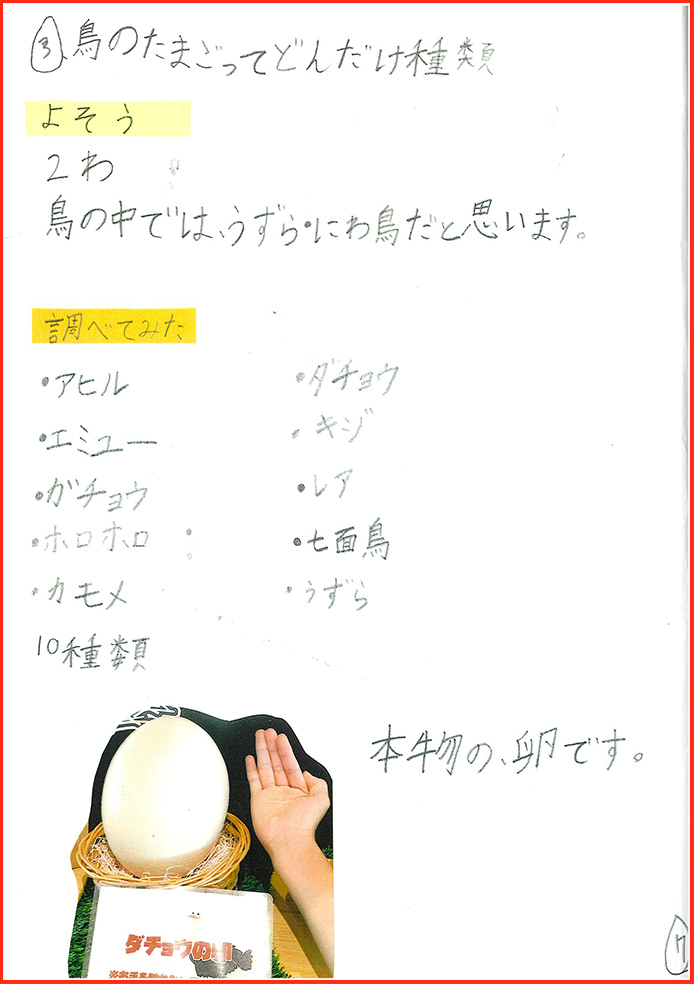 ③、鳥のたまごってどんだけ種類
よそう
2わ
鳥の中では、うずら・にわ鳥だと思います。
調べてみた
・アヒル
・エミュー
・ガチョウ
・ホロホロ
・カモメ
・ダチョウ
・キジ
・レア
・七面鳥
・うずら
10種類
本物の、卵です。
ダチョウの卵
7